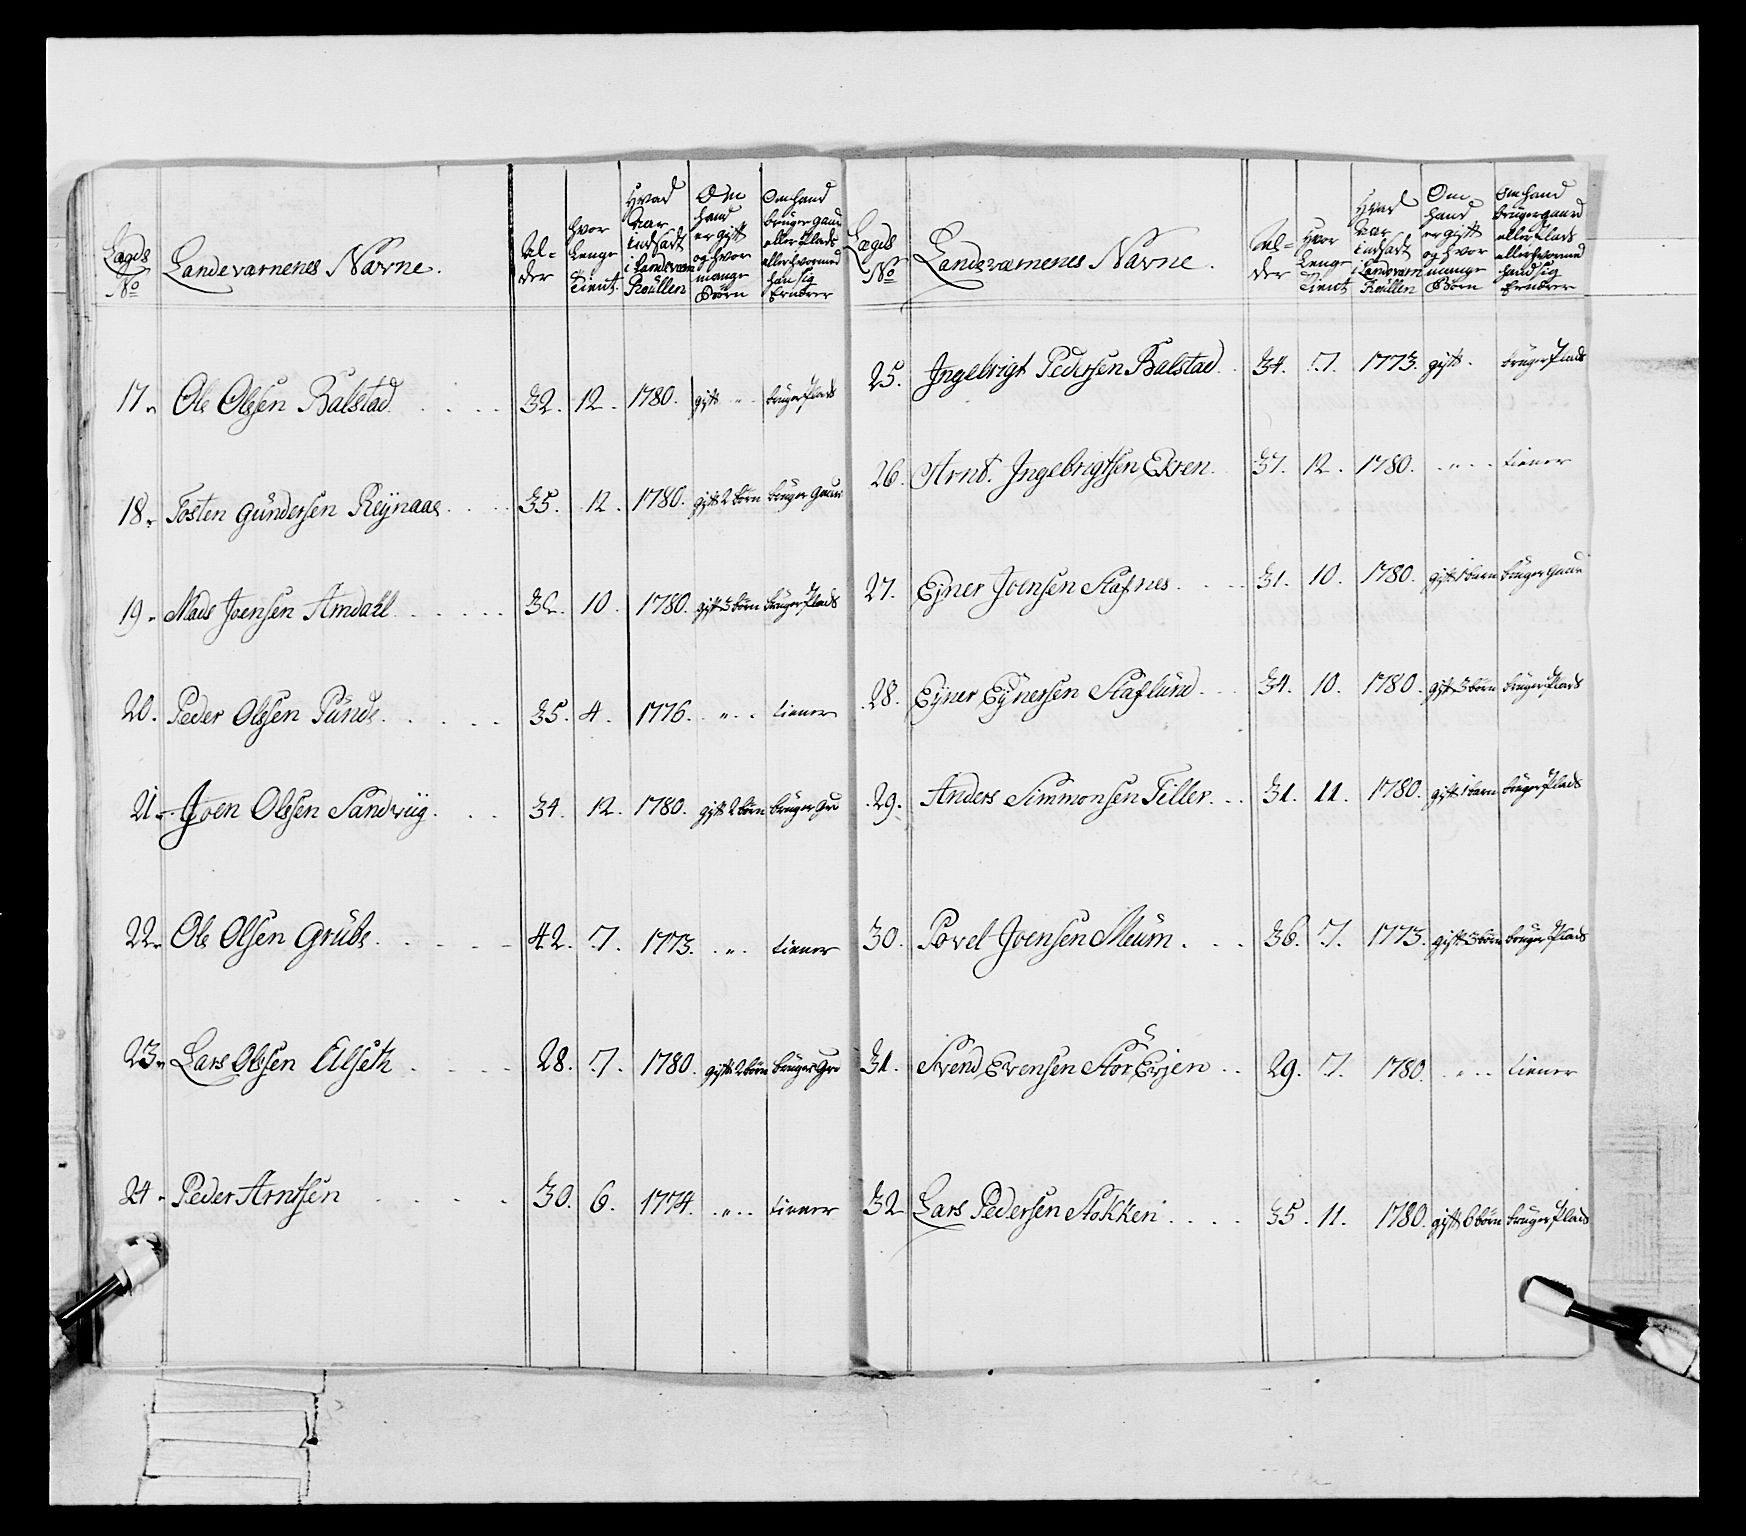 Lægds No
Landeværnenes Navne.
Al-der
Hvor Lenge Tient.
Hvad Aar indsadt i Landeværn Roullen
Om hand er gift og hvor mange Børn
Om hand bruger gaard eller Plads eller hvormed han sig Ernærer
17. Ole Olssen Balstad . . . . 32. 12. 1780. gift „ bruger Plads
18. Tosten Gundersen Reÿnaas . . . 35. 12. 1780. gift 2 børn bruger Gaard
19. Mads Joensen Amdahl . . . . 36. 10. 1780. gift 3 børn bruger Plads
20. Peder Olssen Punde . . . . 35. 4. 1776. . „ . . tiener
21. Joen Olssen Sandviig . . . 34. 12. 1780. gift 2 børn bruger Grd
22. Ole Olsen Grube . . . . 42. 7. 1773. . „ . tiener
23. Lars Olssen Elseth . . . . 28. 7. 1780. gift 2 børn bruger Grd
24. Peder Arntsen . . . . 30. 6. 1774. . „ . . tiener
Lægds No
Landeværnenes Navne.
Al-der
Hvor Lenge Tient
Hvad Aar indsadt i Landeværn Roullen
Om hand er gift og hvor mange Børn
Om hand bruger gaard eller Plads eller hvormed hand sig Ernærer
25. Ingebrigt Pedersen Balstad. 34. 7. 1773. gift . bruger Plads
26. Arnt. Ingebrigtsen Ekren. 37. 12. 1780. . „ . . tiener
27. Ejner Joensen Stafnes . . . 31. 10. 1780. gift 1 barn bruger Gaard
28. Ejner Ejnersen Staflund . . . 34. 10. 1780. gift 3 børn bruger Plads
29. Anders Simmonsen Tiller. . . 31. 11. 1780. gift 1 barn bruger Plads
30. Povel Joensen Meum . . . 36. 7. 1773. gift 3 børn bruger Plads
31. Svend Evensen Stor Evjen . . 29. 7. 1780. . „ . . tiener
32 Lars Pedersen Stokken . . . . 35. 11. 1780. gift 6 børn bruger Plads